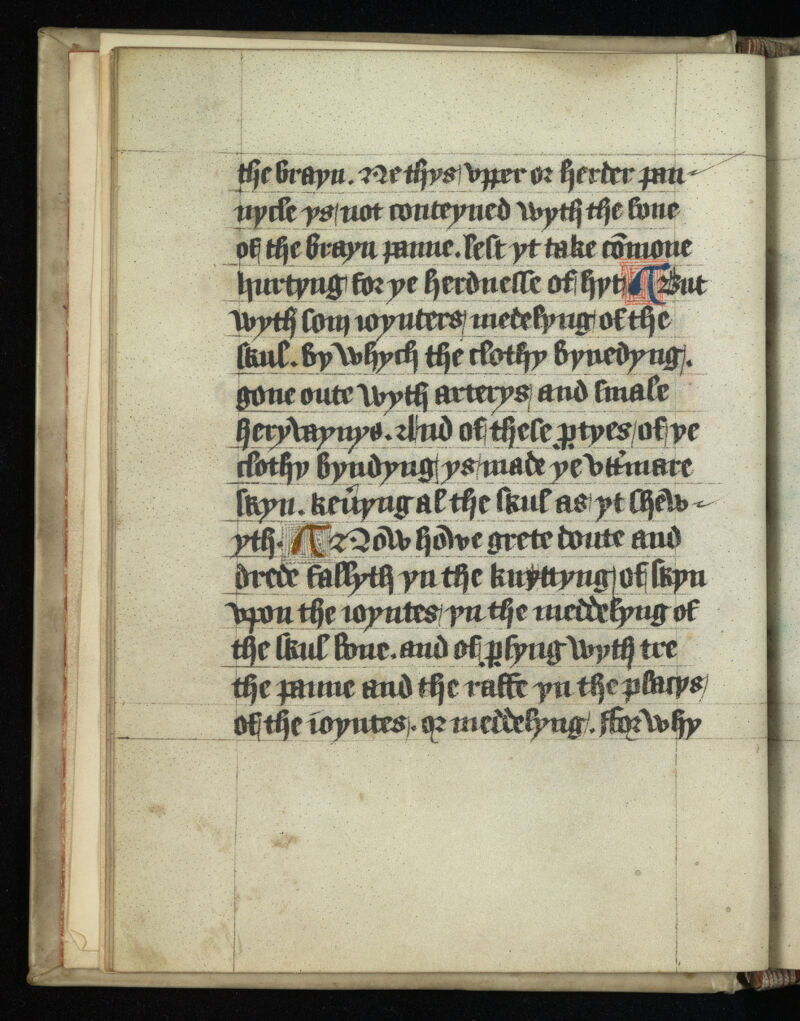 the brayn. Ne thys vpper or herder pan-
nycle ys not conteyned wyth the bone
of the brayn panne. lest yt take cōmone
hurtyng for ye herdnesse of hyt ¶ But
wyth som ioynters medelyng of the
skul. by whych the clothy bynedyng.
gone oute wyth arterys and smale
hery vaynys. And of these ꝑtyes of ye
clothy byndyng ys made ye vttmare
skyn. keūyng al the skul as yt shew-
yth. ¶ Now howe grete doute and
drede fallyth yn the knyttyng of skyn
vpon the ioyntes yn the meddelyng of
the skul bone. and of ꝑsyng wyth tre
the panne and the raffe yn the placys
of the ioyntes. or meddelyng. ffor why